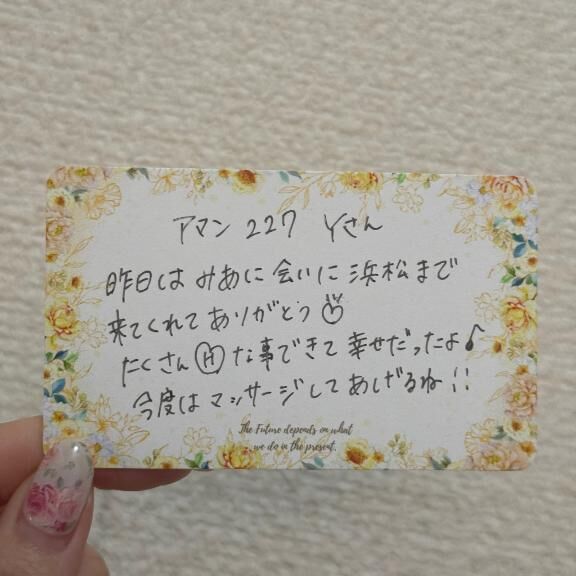 アマン 227 Yさん
昨日は みあに 会いに 浜松まで
来てくれて ありがとう
たくさん Ⓗ な事できて 幸せだったよ♪
今度は マッサージして あげるね!!
The Future depends on what
we do in the present.